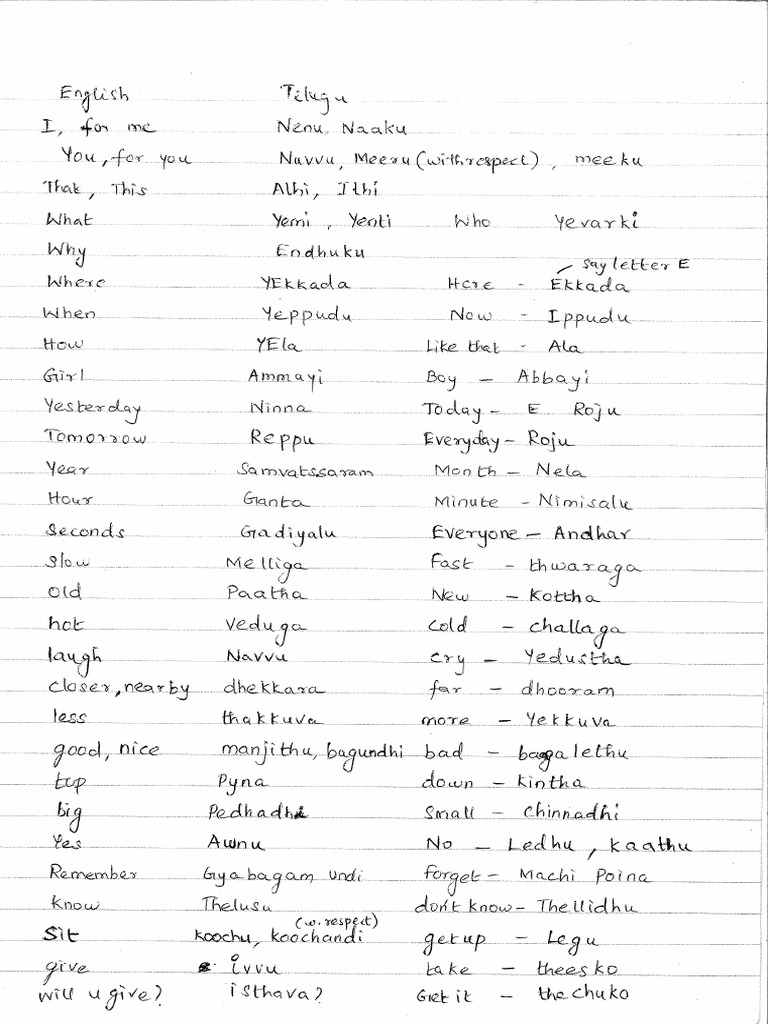 English Telugu
I, for me Nenu, Naaku
You, for you Nuvvu, Meeru (with respect), meeku
That, This Athi, Ithi
What Yemi, Yenti Who Yevarki
Why Endhuku
say letter E
Where YEkkada Here - Ekkada
When Yeppudu Now - Ippudu
How YEla Like that - Ala
Girl Ammayi Boy - Abbayi
Yesterday Ninna Today - E Roju
Tomorrow Reppu Everyday - Roju
Year Samvatssaram Month - Nela
Hour Ganta Minute - Nimisalu
Seconds Gadiyalu Everyone - Andhar
slow Melliga Fast - thwaraga
old Paatha New - Kottha
hot Veduga cold - challaga
laugh Navvu cry - Yedustha
closer, nearby dhekkara far - dhooram
less thakkuva more - Yekkuva
good, nice manjithu, bagundhi bad - bagalethu
top Pyna down - kintha
big Pedhadhi small - chinnadhi
Yes Awnu No - Ledhu, kaathu
Remember Gyabagam undi forget - Machi Poina
know Thelusu don't know - Thellidhu
(w. respect)
Sit koochu, koochandi get up - Legu
give ivvu take - theesko
will u give? isthava? Get it - thechuko